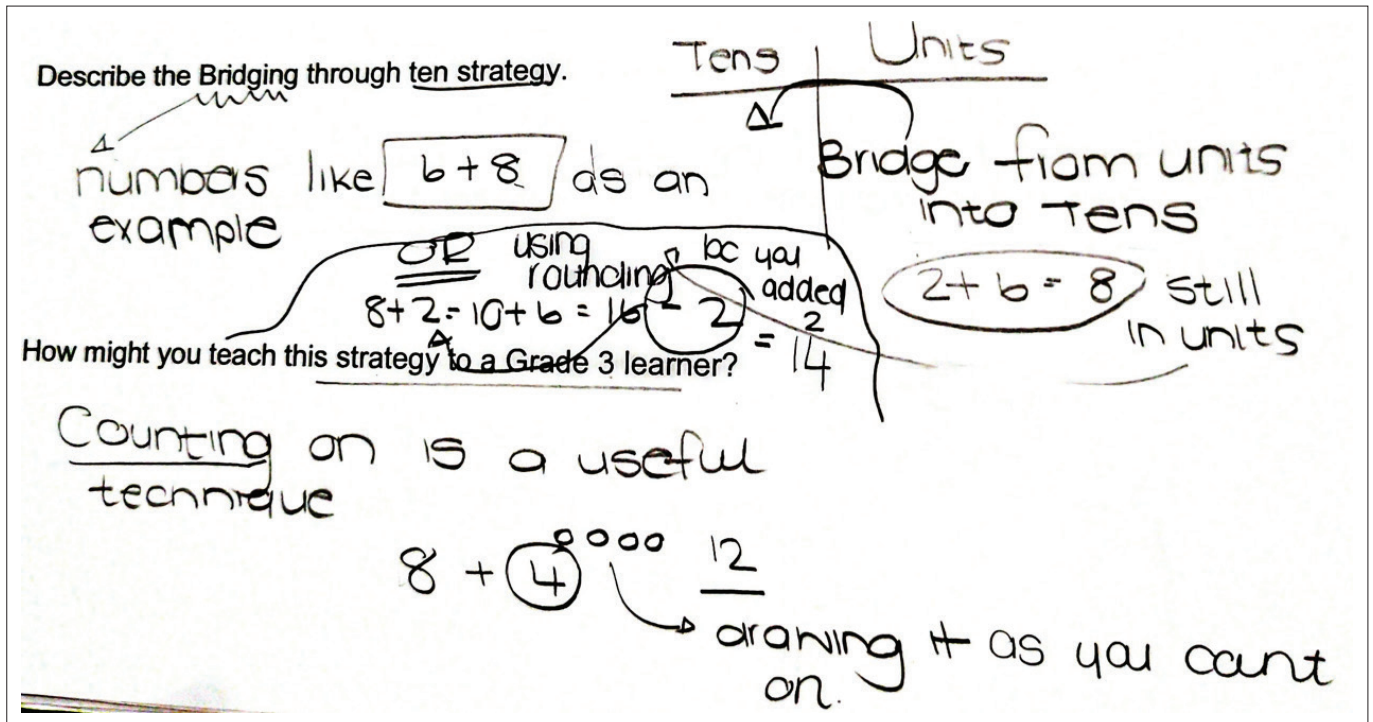 Describe the Bridging through ten strategy.
Tens | Units
numbers like 6 + 8 as an
example
Bridge from units
into Tens
2 + 6 = 8 still
in units
OR using
rounding
bc you
added
2
8 + 2 = 10 + 6 = 16 - 2
= 14
How might you teach this strategy to a Grade 3 learner?
Counting on is a useful
technique
8 + 4 12
drawing it as you count
on.